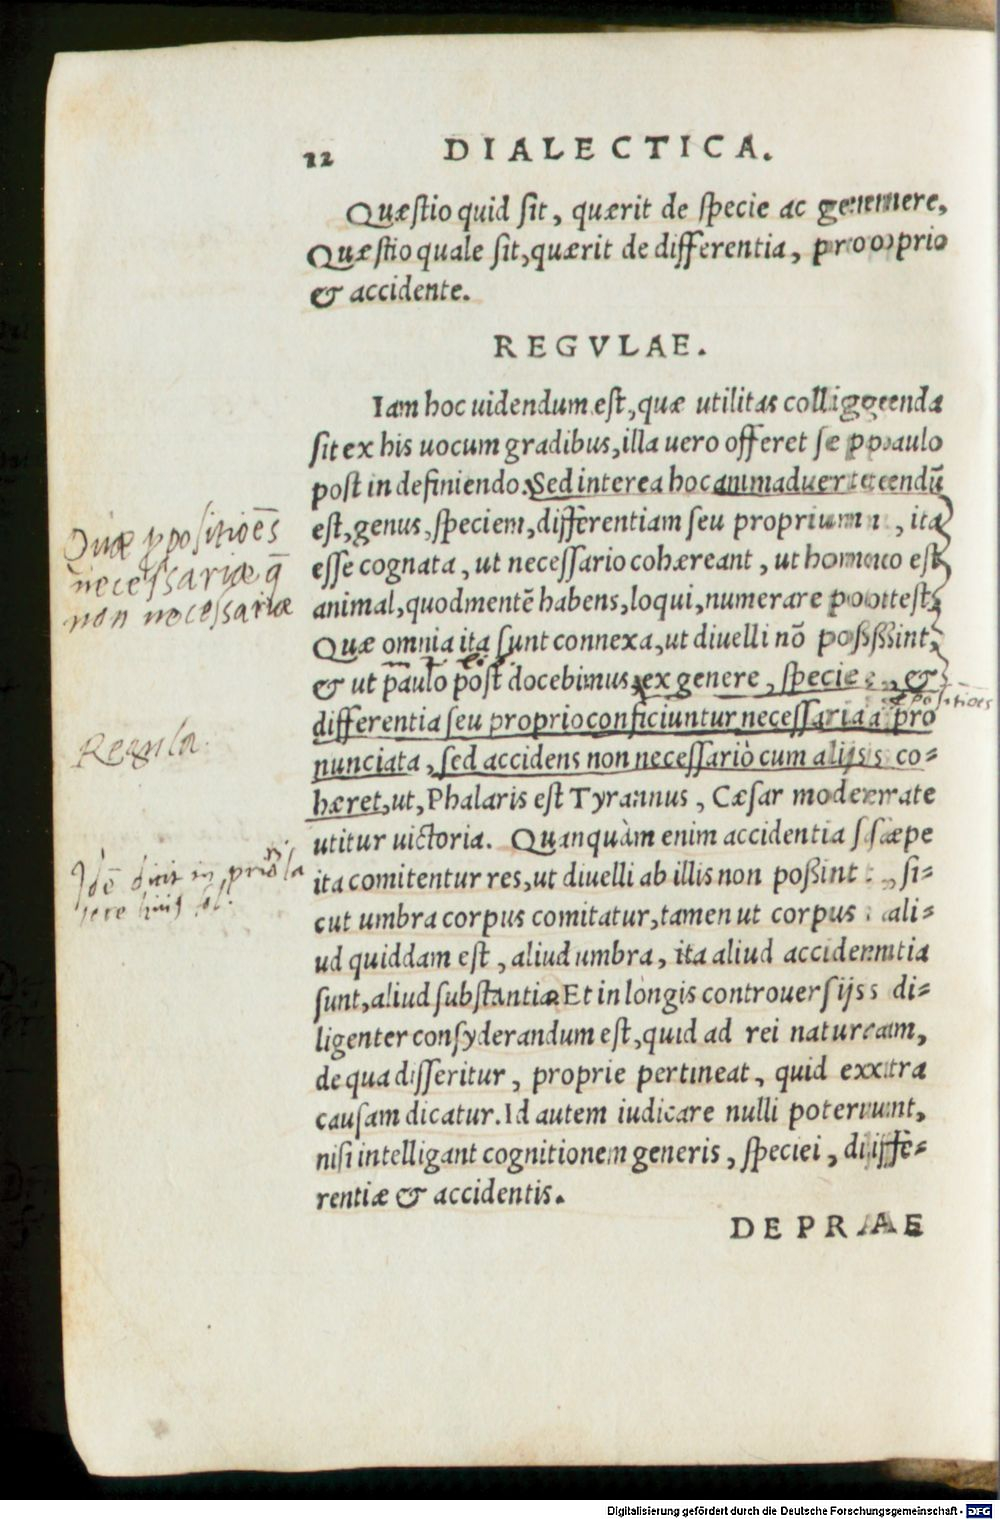 22 DIALECTICA.
Quæstio quid sit, quærit de specie ac genere,
Quæstio quale sit, quærit de differentia, proprio
& accidente.
REGVLAE.
Iam hoc uidendum est, quæ utilitas colligenda
sit ex his uocum gradibus, illa uero offeret se paulo
post in definiendo. Sed interea hoc animaduertendū
est, genus, speciem, differentiam seu proprium, ita
esse cognata, ut necessario cohæreant, ut homo est
animal, quod mentē habens, loqui, numerare potest,
Quæ omnia ita sunt connexa, ut diuelli nō possint,
& ut paulo post docebimus, ex genere, specie, &
differentia seu proprio conficiuntur necessaria pro
nunciata, sed accidens non necessariò cum alijs co-
hæret, ut, Phalaris est Tyrannus, Cæsar moderate
utitur uictoria. Quanquàm enim accidentia sæpe
ita comitentur res, ut diuelli ab illis non possint, si-
cut umbra corpus comitatur, tamen ut corpus ali-
ud quiddam est, aliud umbra, ita aliud accidentia
sunt, aliud substantiæ. Et in longis controuersijs di-
ligenter consyderandum est, quid ad rei naturam,
de qua disseritur, proprie pertineat, quid extra
causam dicatur. Id autem iudicare nulli poterunt,
nisi intelligant cognitionem generis, speciei, diffe-
rentiæ & accidentis.
DE PRAE
Quæ ꝓpositioēs
necessariæ q̄
non necessariæ
ꝓpositioēs
Regula.
Idē dicit in
huiꝰ
Digitalisierung gefördert durch die Deutsche Forschungsgemeinschaft - DFG